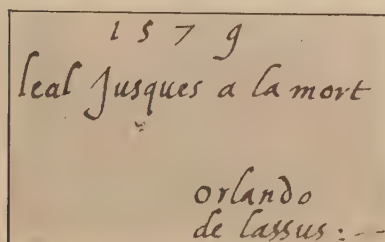 1579
leal Jusques a la mort
orlando
de lassus :--